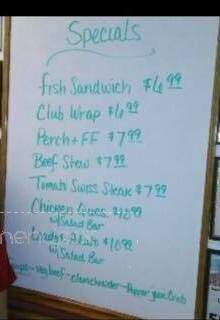 Specials
fish Sandwich $6.99
Club Wrap $6.99
Perch + FF $7.99
Beef Stew $7.99
Tomato Swiss Steak $7.99
Chicken $10.99
w/ Salad Bar
$10.99
w/ Salad Bar
Soups - veg beef - clam chowder -